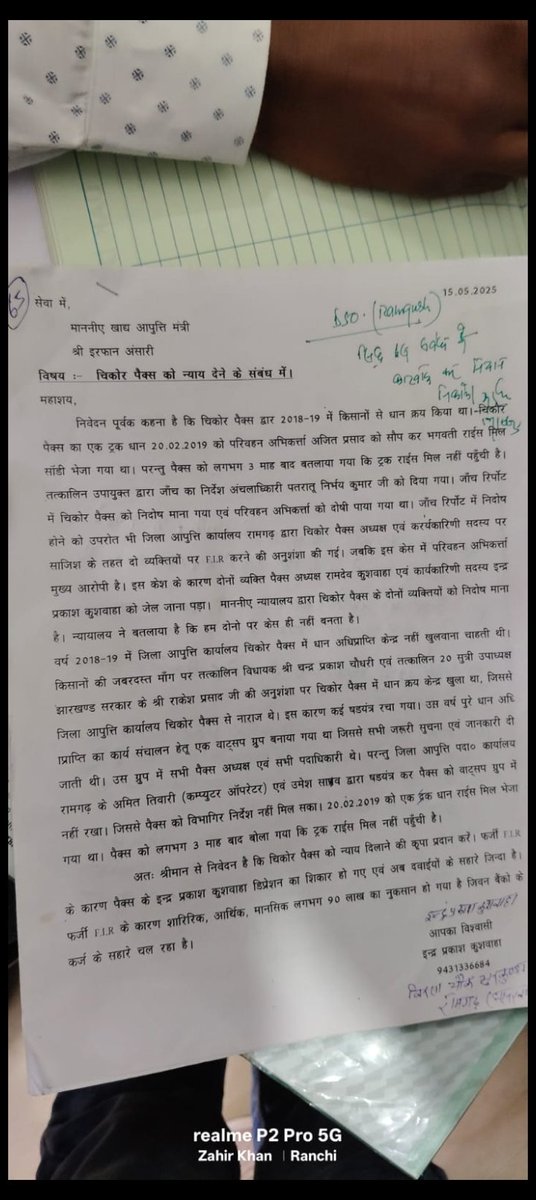 65
15.05.2025
DSO. (Ramgarh)
सेवा में,
माननीए खाद्य आपुत्ति मंत्री
श्री इरफान अंसारी
विषय :- चिकोर पैक्स को न्याय देने के संबंध में।
महाशय,
निवेदन पूर्वक कहना है कि चिकोर पैक्स द्वार 2018-19 में किसानों से धान क्रय किया था। चिकोर
पैक्स का एक ट्रक धान 20.02.2019 को परिवहन अभिकर्त्ता अजित प्रसाद को सौप कर भगवती राईस मिल
सॉडी भेजा गया था। परन्तु पैक्स को लगभग 3 माह बाद बतलाया गया कि ट्रक राईस मिल नहीं पहुँची है।
तत्कालिन उपायुक्त द्वारा जाँच का निर्देश अंचलाधिकारी पतरातू निर्भय कुमार जी को दिया गया। जाँच रिर्पोट
में चिकोर पैक्स को निदोष माना गया एवं परिवहन अभिकर्त्ता को दोषी पाया गया था। जाँच रिर्पोट में निदोष
होने को उपरोत भी जिला आपुत्ति कार्यालय रामगढ़ द्वारा चिकोर पैक्स अध्यक्ष एवं करर्यकारिणी सदस्य पर
साजिश के तहत दो व्यक्तियों पर F.I.R करने की अनुशंशा की गई। जबकि इस केस में परिवहन अभिकर्त्ता
मुख्य आरोपी है। इस केश के कारण दोनों व्यक्ति पैक्स अध्यक्ष रामदेव कुशवाहा एवं कार्यकारिणी सदस्य इन्द्र
प्रकाश कुशवाहा को जेल जाना पड़ा। माननीए न्यायालय द्वारा चिकोर पैक्स के दोनों व्यक्तियों को निदोष माना
है। न्यायालय ने बतलाया है कि हम दोनो पर केस ही नहीं बनता है।
वर्ष 2018-19 में जिला आपुत्ति कार्यालय चिकोर पैक्स में धान अधिप्राप्ति केन्द्र नहीं खुलवाना चाहती थी।
किसानों की जबरदस्त माँग पर तत्कालिन विधायक श्री चन्द्र प्रकाश चौधरी एवं तत्कालिन 20 सुत्री उपाध्यक्ष
झारखण्ड सरकार के श्री राकेश प्रसाद जी की अनुशंशा पर चिकोर पैक्स में धान क्रय केन्द्र खुला था, जिससे
जिला आपुत्ति कार्यालय चिकोर पैक्स से नाराज थे। इस कारण कई षडयंत्र रचा गया। उस वर्ष पुरे धान अधि
प्राप्ति का कार्य संचालन हेतू एक वाट्सप ग्रुप बनाया गया था जिससे सभी जरूरी सुचना एवं जानकारी दी
जाती थी। उस ग्रुप में सभी पैक्स अध्यक्ष एवं सभी पदाधिकारी थे। परन्तु जिला आपुत्ति पदा० कार्यालय
रामगढ़ के अमित तिवारी (कम्प्युटर ऑपरेटर) एवं उमेश द्वारा षडयंत्र कर पैक्स को वाट्सप ग्रुप में
नहीं रखा। जिससे पैक्स को विभागिर निर्देश नहीं मिल सका। 20.02.2019 को एक ट्रक धान राईस मिल भेजा
गया था। पैक्स को लगभग 3 माह बाद बोला गया कि ट्रक राईस मिल नहीं पहूँची है।
अतः श्रीमान से निवेदन है कि चिकोर पैक्स को न्याय दिलाने की कृपा प्रदान करें। फर्जी F.I.R
के कारण पैक्स के इन्द्र प्रकाश कुशवाहा डिप्रेशन का शिकार हो गए एवं अब दवाईयों के सहारे जिन्दा है।
फर्जी F.I.R के कारण शारिरिक, आर्थिक, मानसिक लगभग 90 लाख का नुकसान हो गया है जिवन बैंको के
कर्ज के सहारे चल रहा है।
इन्द्र प्रकाश कुशवाहा
आपका विश्वासी
इन्द्र प्रकाश कुशवाहा
9431336684
realme P2 Pro 5G
Zahir Khan | Ranchi